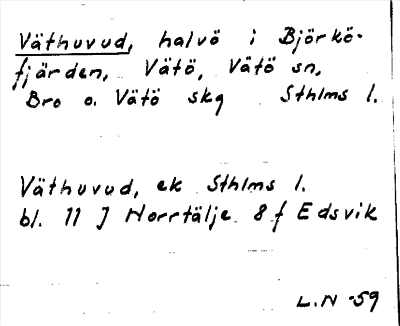 Väthuvud, halvö i Björkö-
fjärden, Vätö, Vätö sn,
Bro o. Vätö skg Sthlms l.
Väthuvud, ek Sthlms l.
bl. 11 J Norrtälje 8 f Edsvik
L.N -59